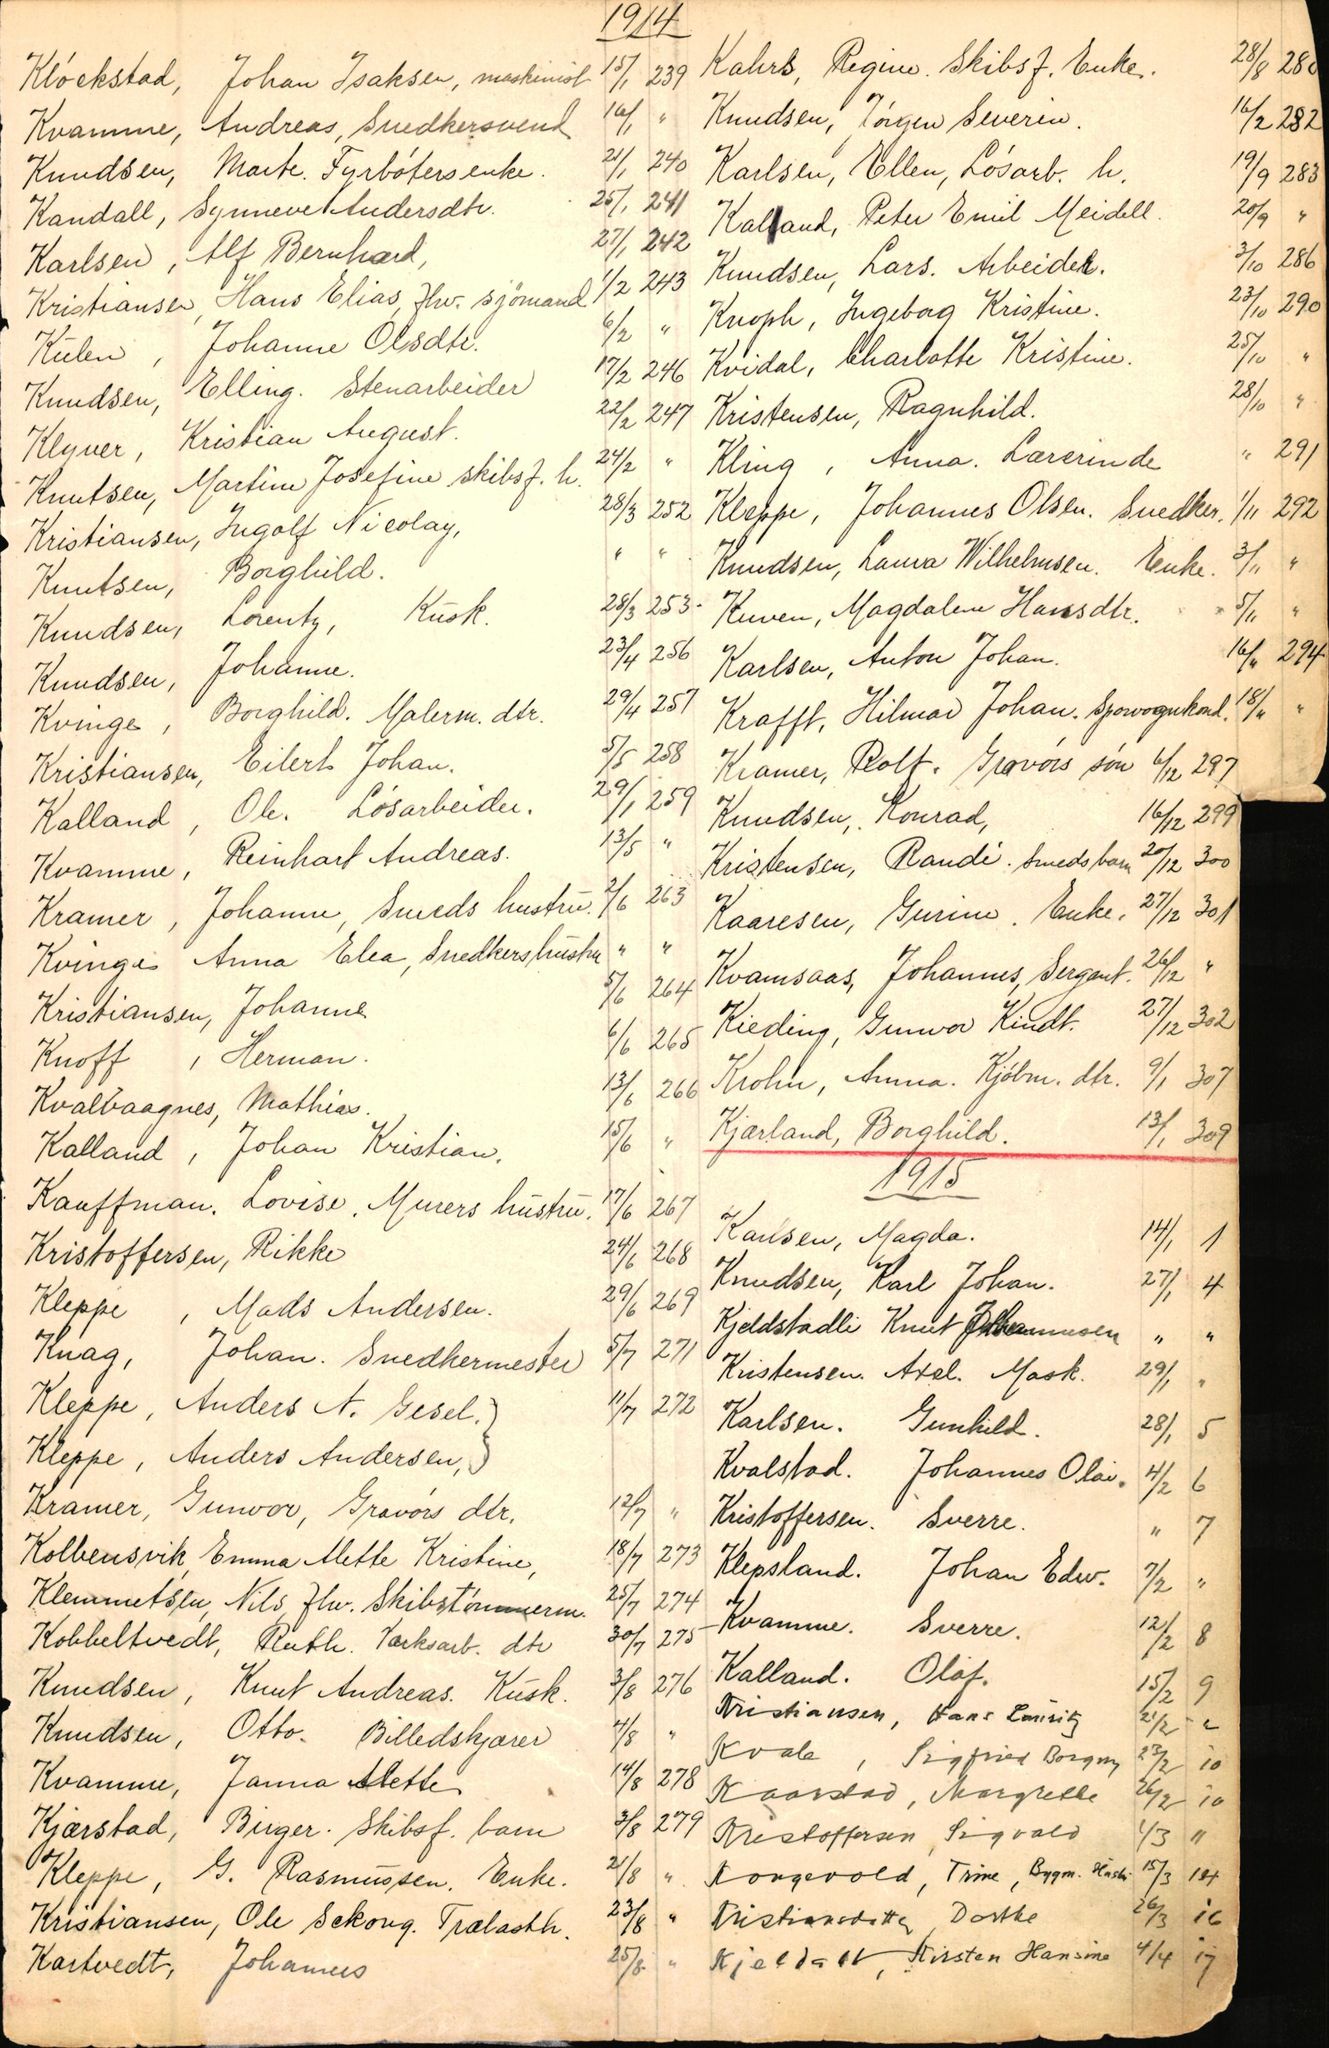 1914
Klöckstad, Johan Isaksen, maskinist 15/1 239
Kvamme, Andreas, Snedkersvend 16/1 "
Knudsen, Marte. Fyrböters enke. 21/1 240
Kandall, Synneve Andersdtr. 25/1 241
Karlsen, Alf Bernhard, 27/1 242
Kristiansen, Hans Elias, fhv. sjömand 1/2 243
Külen, Johanne Olsdtr. 6/2 "
Knudsen, Elling. Stenarbeider 17/2 246
Klyver, Kristian August. 22/2 247
Knutsen, Martine Josefine skibsf. h. 24/2 "
Kristiansen, Ingolf Nicolay, 28/3 252
Knutsen, Borghild. " "
Knudsen, Lorentz, Kusk. 28/3 253
Knudsen, Johanne. 23/4 256
Kvinge, Borghild. Malerm. dtr. 29/4 257
Kristiansen, Eilert Johan. 5/5 258
Kalland, Ole. Lösarbeider. 29/1 259
Kvamme, Reinhart Andreas. 13/5 "
Kramer, Johanne, Smeds hustru. 2/6 263
Kvinge Anna Elea, Snedkershustru " "
Kristiansen, Johanne 5/6 264
Knoff, Herman. 6/6 265
Kvalvaagnes, Mathias. 13/6 266
Kalland, Johan Kristian. 15/6 "
Kauffman. Lovise. Murers hustru. 17/6 267
Kristoffersen, Rikke 24/6 268
Kleppe, Mads Andersen. 29/6 269
Knag, Johan. Snedkermester 5/7 271
Kleppe, Anders A. Gesel. 11/7 272
Kleppe, Anders Andersen,
Kramer, Gunvor, Gravörs dtr. 12/7 "
Kolbensvik, Emma Mette Kristine, 18/7 273
Klemmetsen, Nils, fhv. Skibstömmerm. 25/7 274
Kobbeltvedt, Ruth. Værksarb. dtr 30/7 275
Knudsen, Knut Andreas. Kusk. 3/8 276
Knudsen, Otto. Billedskjærer 4/8 "
Kvamme, Janna Mette 14/8 278
Kjærstad, Birger. Skibsf. barn 3/8 279
Kleppe, G. Rasmussen, Enke. 21/8 "
Kristiansen, Ole Sekong. Trælasth. 23/8 "
Kartvedt, Johannes 25/8 "
Kahrs, Regine. Skibsf. Enke. 28/8 280
Knudsen, Jörgen Severin. 16/2 282
Karlsen, Ellen, Lösarb. h. 19/9 283
Kalland, Peter Emil Meidell. 20/9 "
Knudsen, Lars. Arbeider. 3/10 286
Knoph, Ingeborg Kristine. 23/10 290
Kvidal, Charlotte Kristine. 25/10 "
Kristensen, Ragnhild. 28/10 "
Kling, Anna. Lærerinde " 291
Kleppe, Johannes Olsen. Snedker. 1/11 292
Knudsen, Laura Wilhelmsen. Enke. 3/11 "
Kuven, Magdalene Hansdtr. 5/11 "
Karlsen, Anton Johan. 16/11 294
Krafft, Hilmar Johan. Sporvognkond. 18/11 "
Kramer, Rolf. Gravörs sön 6/12 297
Knudsen, Konrad, 16/12 299
Kristensen, Randi. Smedsbarn 20/12 300
Kaaresen, Gurine. Enke. 27/12 301
Kvamsaas, Johannes, Sergant. 26/12 "
Kieding, Gunvor Kindt. 27/12 302
Krohn, Anna. Kjöbm. dtr. 9/1 307
Kjærland, Borghild. 13/1 309
1915
Karlsen, Magda. 14/1 1
Knudsen, Karl Johan. 27/1 4
Kjeldstadli Knut Johannesen " "
Kristensen. Axel. Mask. 29/1 "
Karlsen. Gunhild. 28/1 5
Kvalstad. Johannes Olai. 4/2 6
Kristoffersen. Sverre. " 7
Klepsland. Johan Edw. 7/2 "
Kvamme. Sverre. 12/2 8
Kalland. Olaf. 15/2 9
Kristiansen, Hans Lauritz 21/2 "
Kvale, Sigfried Borgny 23/2 10
Kaarstad, Margrethe 26/2 10
Kristoffersen, Sigvald 1/3 "
Kongevold, Trine, Bygm. Hustr 15/3 14
Kristiansdatter, Dorthe 26/3 16
Kjeldalt, Kirsten Hansine 4/4 17